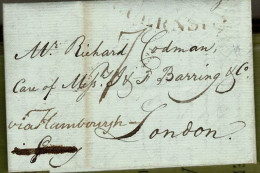 Mr. Richard Codman,
Care of Messrs. J. & F. Barring & Co.
via Hambourgh
London.